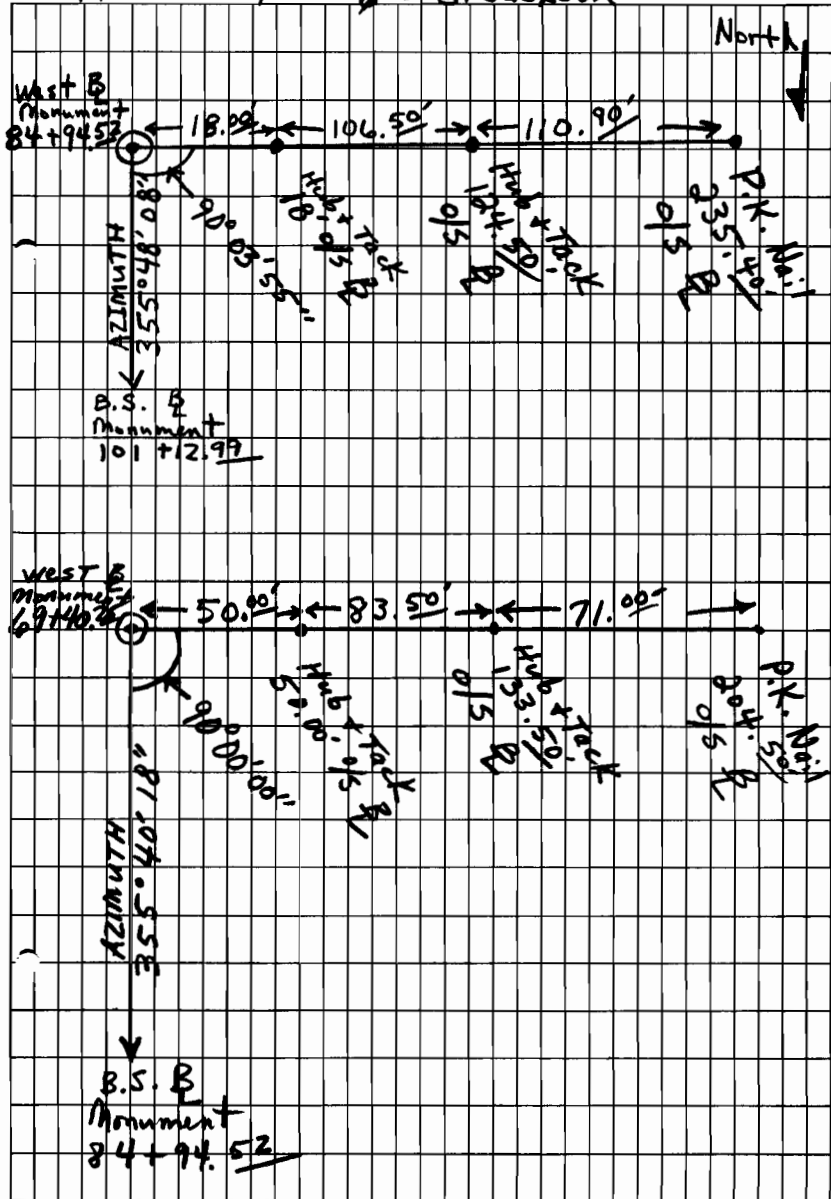 North
West BL
Monument
84+94.52
18.00'
106.50'
110.90'
90° 03' 55"
Hub & Tack
18' o/s BL
Hub & Tack
124.50'
o/s BL
P.K. Nail
235.40'
o/s BL
AZIMUTH
355° 48' 08"
B.S. BL
Monument
101 + 12.99
West BL
Monument
50.00'
83.50'
71.00'
90° 00' 00"
Hub & Tack
50.00' o/s BL
Hub & Tack
133.50'
o/s BL
P.K. Nail
204.50'
o/s BL
AZIMUTH
355° 40' 18"
B.S. BL
Monument
84 + 94.52